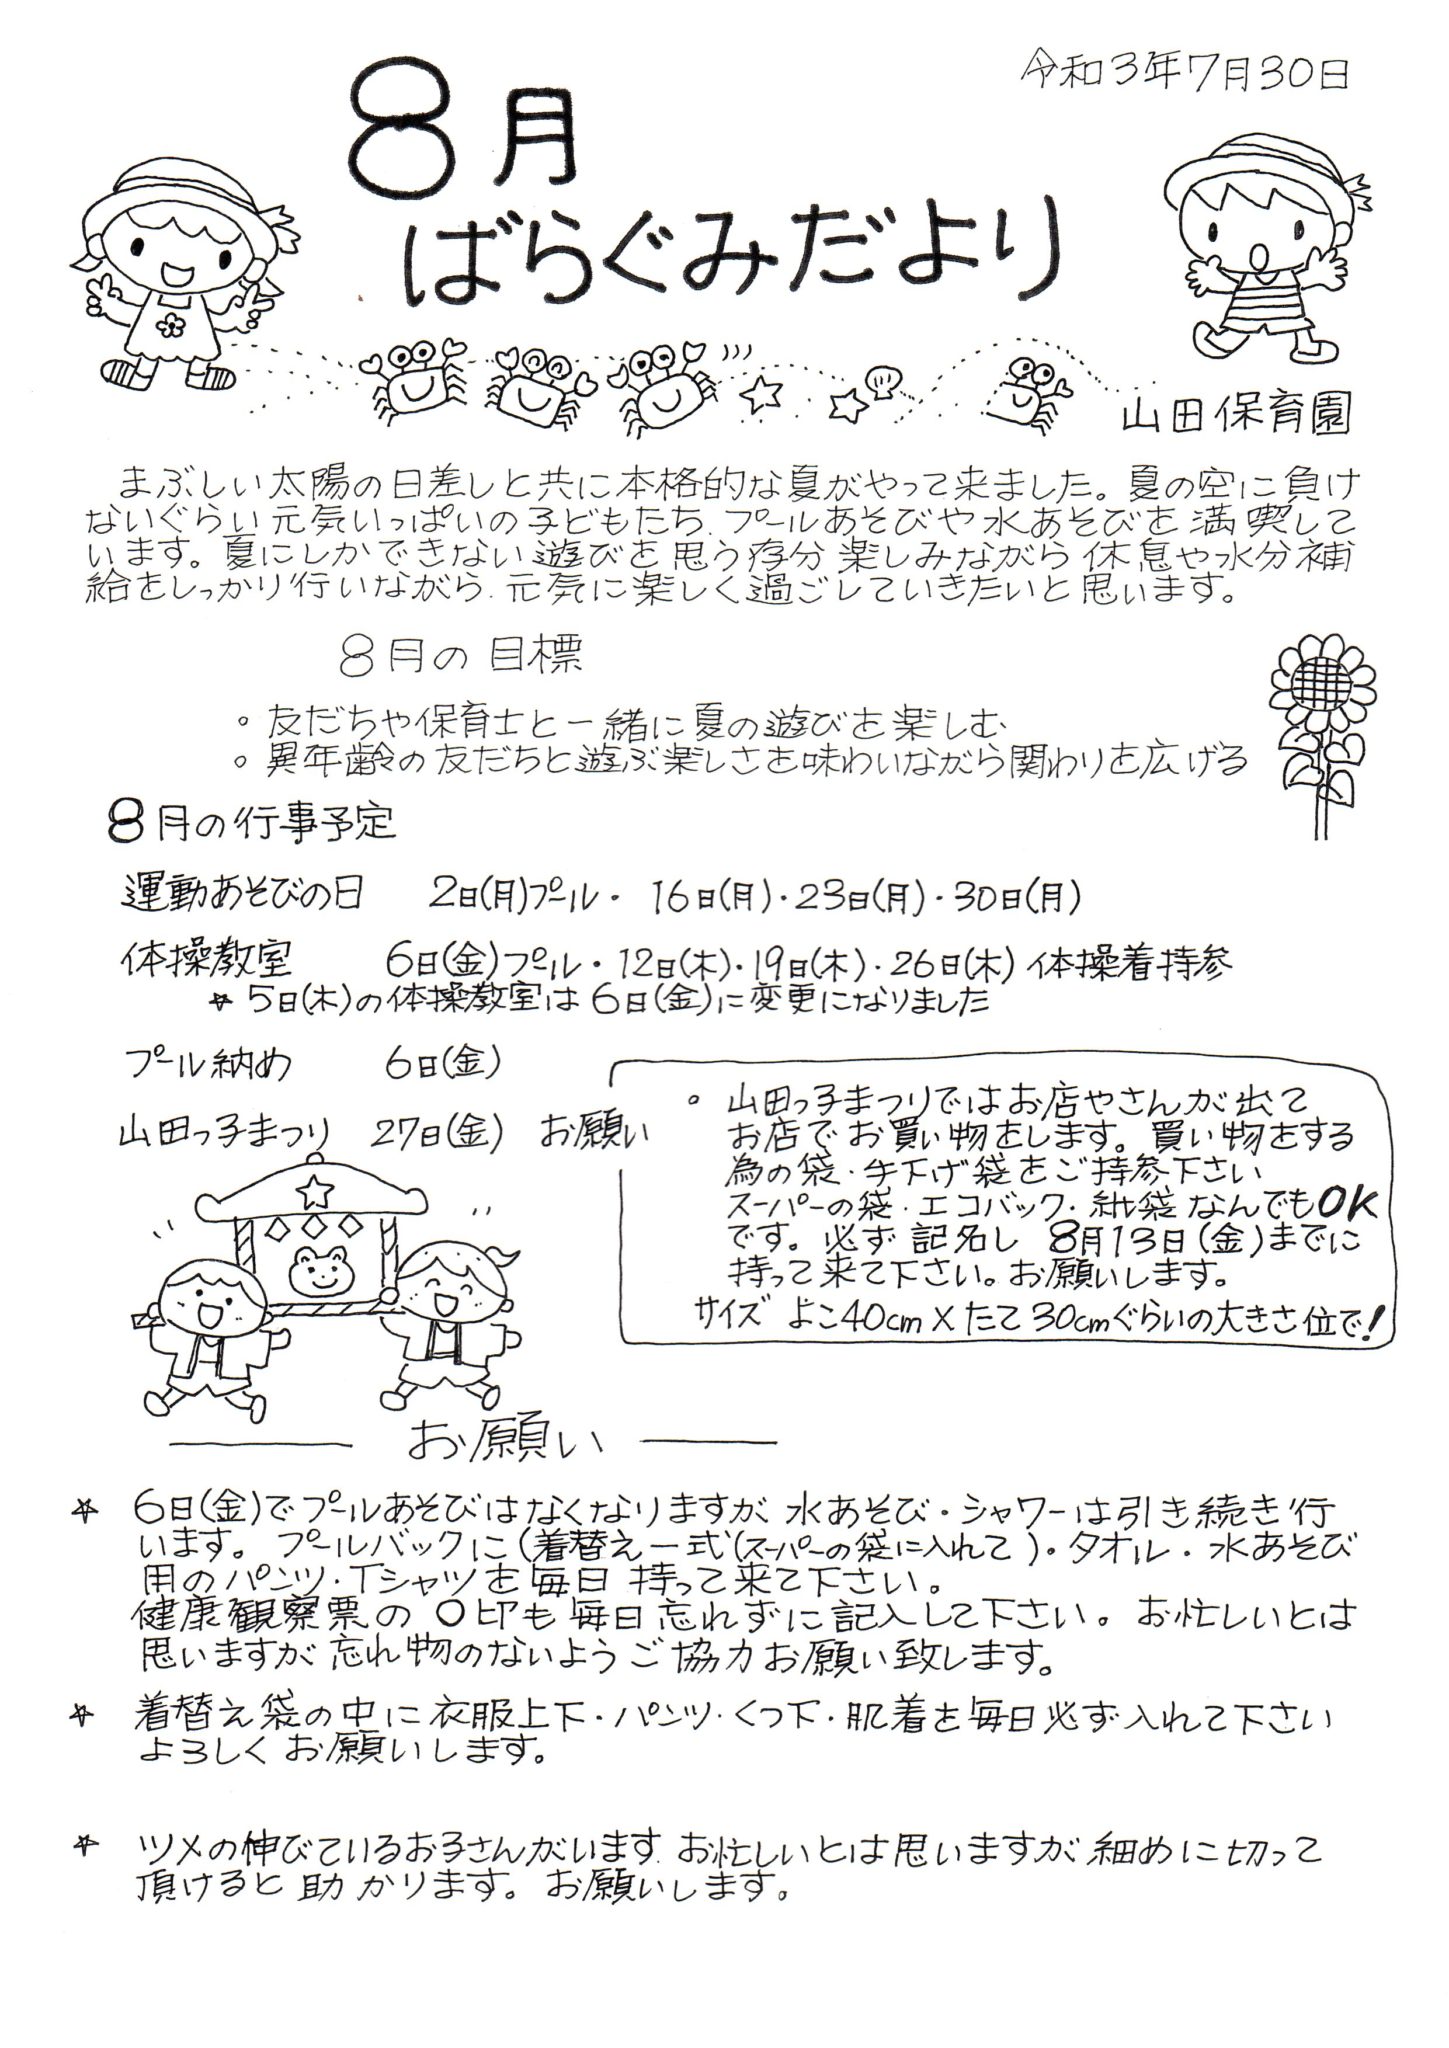 令和3年7月30日
8月
ばらぐみだより
山田保育園
まぶしい太陽の日差しと共に本格的な夏がやって来ました。夏の空に負け
ないぐらい元気いっぱいの子どもたち、プールあそびや水あそびを満喫して
います。夏にしかできない遊びを思う存分楽しみながら休息や水分補
給をしっかり行いながら、元気に楽しく過ごしていきたいと思います。
8月の目標
○ 友だちや保育士と一緒に夏の遊びを楽しむ
○ 異年齢の友だちと遊ぶ楽しさを味わいながら関わりを広げる
8月の行事予定
運動あそびの日 2日(月)プール・16日(月)・23日(月)・30日(月)
体操教室 6日(金)プール・12日(木)・19日(木)・26日(木)体操着持参
☆ 5日(木)の体操教室は6日(金)に変更になりました
プール納め 6日(金)
山田っ子まつり 27日(金) お願い
○ 山田っ子まつりではお店やさんが出て
お店でお買い物をします。買い物をする
為の袋・手下げ袋をご持参下さい
スーパーの袋・エコバック・紙袋なんでもOK
です。必ず記名し 8月13日(金)までに
持って来て下さい。お願いします。
サイズ よこ40cm×たて30cmぐらいの大きさ位で!
お願い
☆ 6日(金)でプールあそびはなくなりますが水あそび・シャワーは引き続き行
います。プールバックに(着替え一式(スーパーの袋に入れて)・タオル・水あそび
用のパンツ・Tシャツを毎日持って来て下さい。
健康観察票の○印も毎日忘れずに記入して下さい。お忙しいとは
思いますが忘れ物のないようご協力お願い致します。
☆ 着替え袋の中に衣服上下・パンツ・くつ下・肌着を毎日必ず入れて下さい
よろしくお願いします。
☆ ツメの伸びているお子さんがいます、お忙しいとは思いますが細めに切って
頂けると助かります。お願いします。